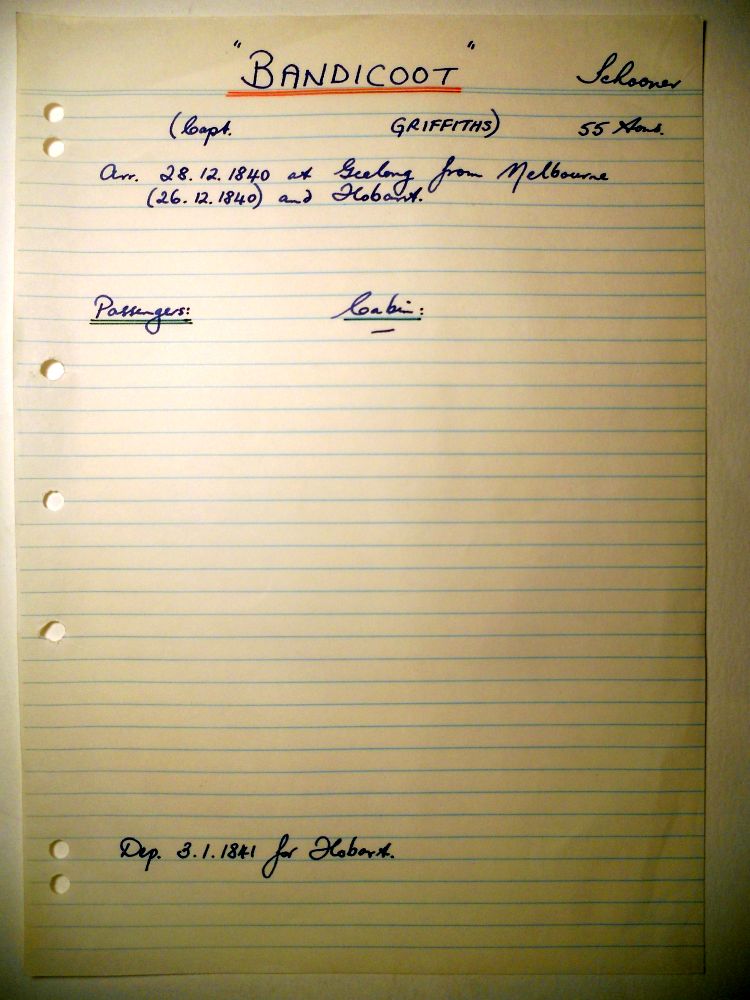 "BANDICOOT" Schooner
(Capt. GRIFFITHS) 55 tons.
Arr. 28.12.1840 at Geelong from Melbourne
(26.12.1840) and Hobart.
Passengers: Cabin:
—
Dep. 3.1.1841 for Hobart.